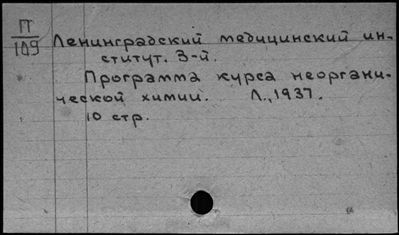 П
109
Ленинградский медицинский ин-
ститут. 3-й.
Программа курса неоргани-
ческой химии. Л., 1937.
10 стр.